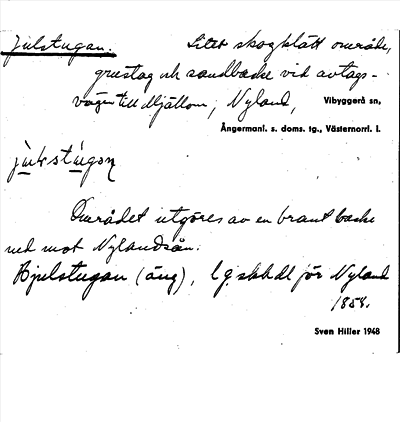 Julstugan. Litet skogklätt område,
grustag och sandbacke vid avtags-
vägen till Mjällom, Nyland, Vibyggerå sn,
Ångermanl. s. doms. tg., Västernorrl. l.
Området utgöres av en brant backe
ned mot Nylandsån.
Hjulstugan (äng), l.g. skhdl för Nyland
1858.
Sven Hiller 1948